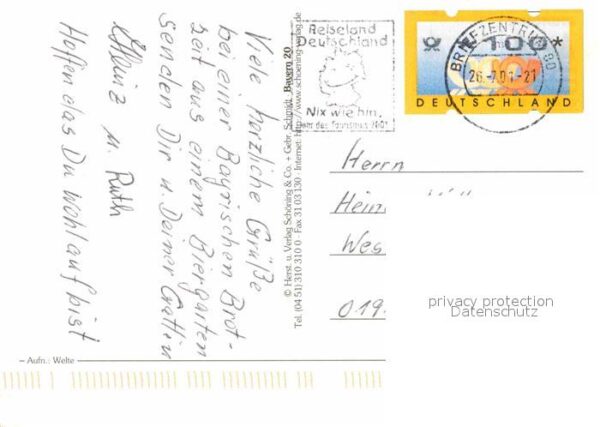 Viele herzliche Grüße
bei einer Bayrischen Brot-
zeit aus einem Biergarten
senden Dir u Deiner Gattin
Heinz u. Ruth
Hoffen das Du wohlauf bist
— Aufn.: Welte
© Herst. u. Verlag Schöning & Co. + Gebr. Schmidt Bayern 20
Tel. (04 51) 310 310 0 · Fax 31 03 130 · Internet: http://www.schoening-verlag.de
Reiseland
Deutschland
Nix wie hin.
BRIEFZENTRUM 80
*100*
DEUTSCHLAND
Herrn
Hein
Wes
019
privacy protection
Datenschutz